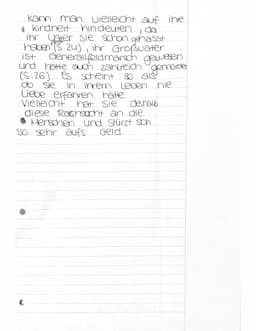 kann man vielleicht auf ihre
kindheit hindeuten, da
ihr Vater sie schon gehasst
haben (S.24), ihr Großvater
ist Generalfeldmarsch gewesen
und hatte auch zahlreich gemordet
(S.26). Es scheint so als
ob sie in ihrem Leben nie
Liebe erfahren hätte
Vielleicht hat sie deshalb
diese an die
Menschen und stürzt sich
so sehr aufs Geld.